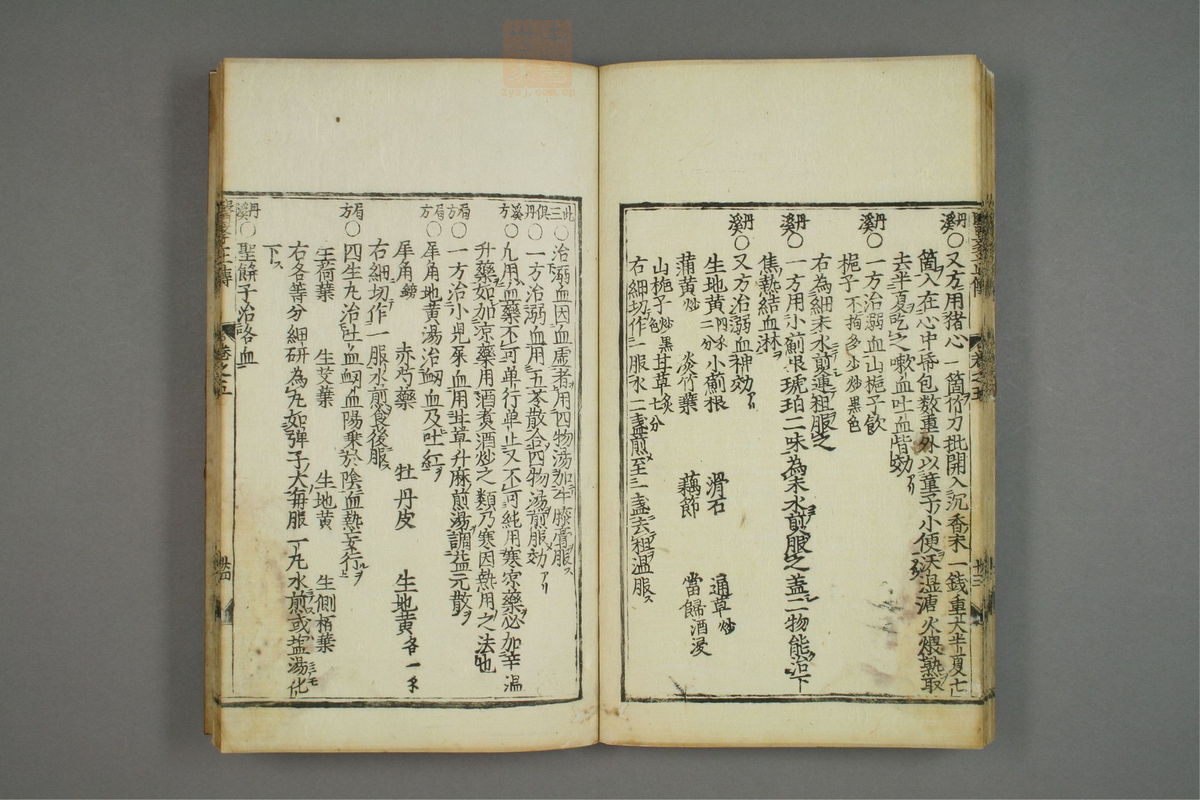 丹溪○又方用猪心一箇竹刀批開入沉香末一錢重大半夏七
箇入在心中帋包数重外以童子小便湿溏火煨熟取
去半夏吃之嗽血吐血皆効
丹溪○一方治溺血山梔子飲
梔子不拘多少炒黒色
右為細末水煎連粗服之
丹溪○一方用小薊根琥珀二味為末水煎服之盖二物能治下
焦熱結血淋
丹溪○又方治溺血神効
生地黄四分 小薊根 滑石 通草炒
蒲黄炒 淡竹葉 藕節 當歸酒浸
山梔子炒黒色 甘草炙七分
右細切作一服水二盞煎至一盞去粗温服
此三俱丹溪方○治溺血因血虚者用四物湯加牛膝膏服
○一方治溺血用五苓散合四物湯煎服効
○凡用血藥不可单行单止又不可純用寒凉藥必加辛温
升藥如加凉藥用酒煮酒炒之類乃寒因熱用之法也
局方○一方治小児尿血用甘草升麻煎湯調益元散
局方○犀角地黄湯治衂血及吐紅
犀角鎊 赤芍藥 牡丹皮 生地黄各一
右細切作一服水煎食後服
局方○四生丸治吐血衂血陽乗於陰血熱妄行
生荷葉 生艾葉 生地黄 生側栢葉
右各等分細研為丸如弾子大毎服一丸水煎或盐湯化
下
丹溪○聖餅子治咯血
卷之五
卅三
卅四